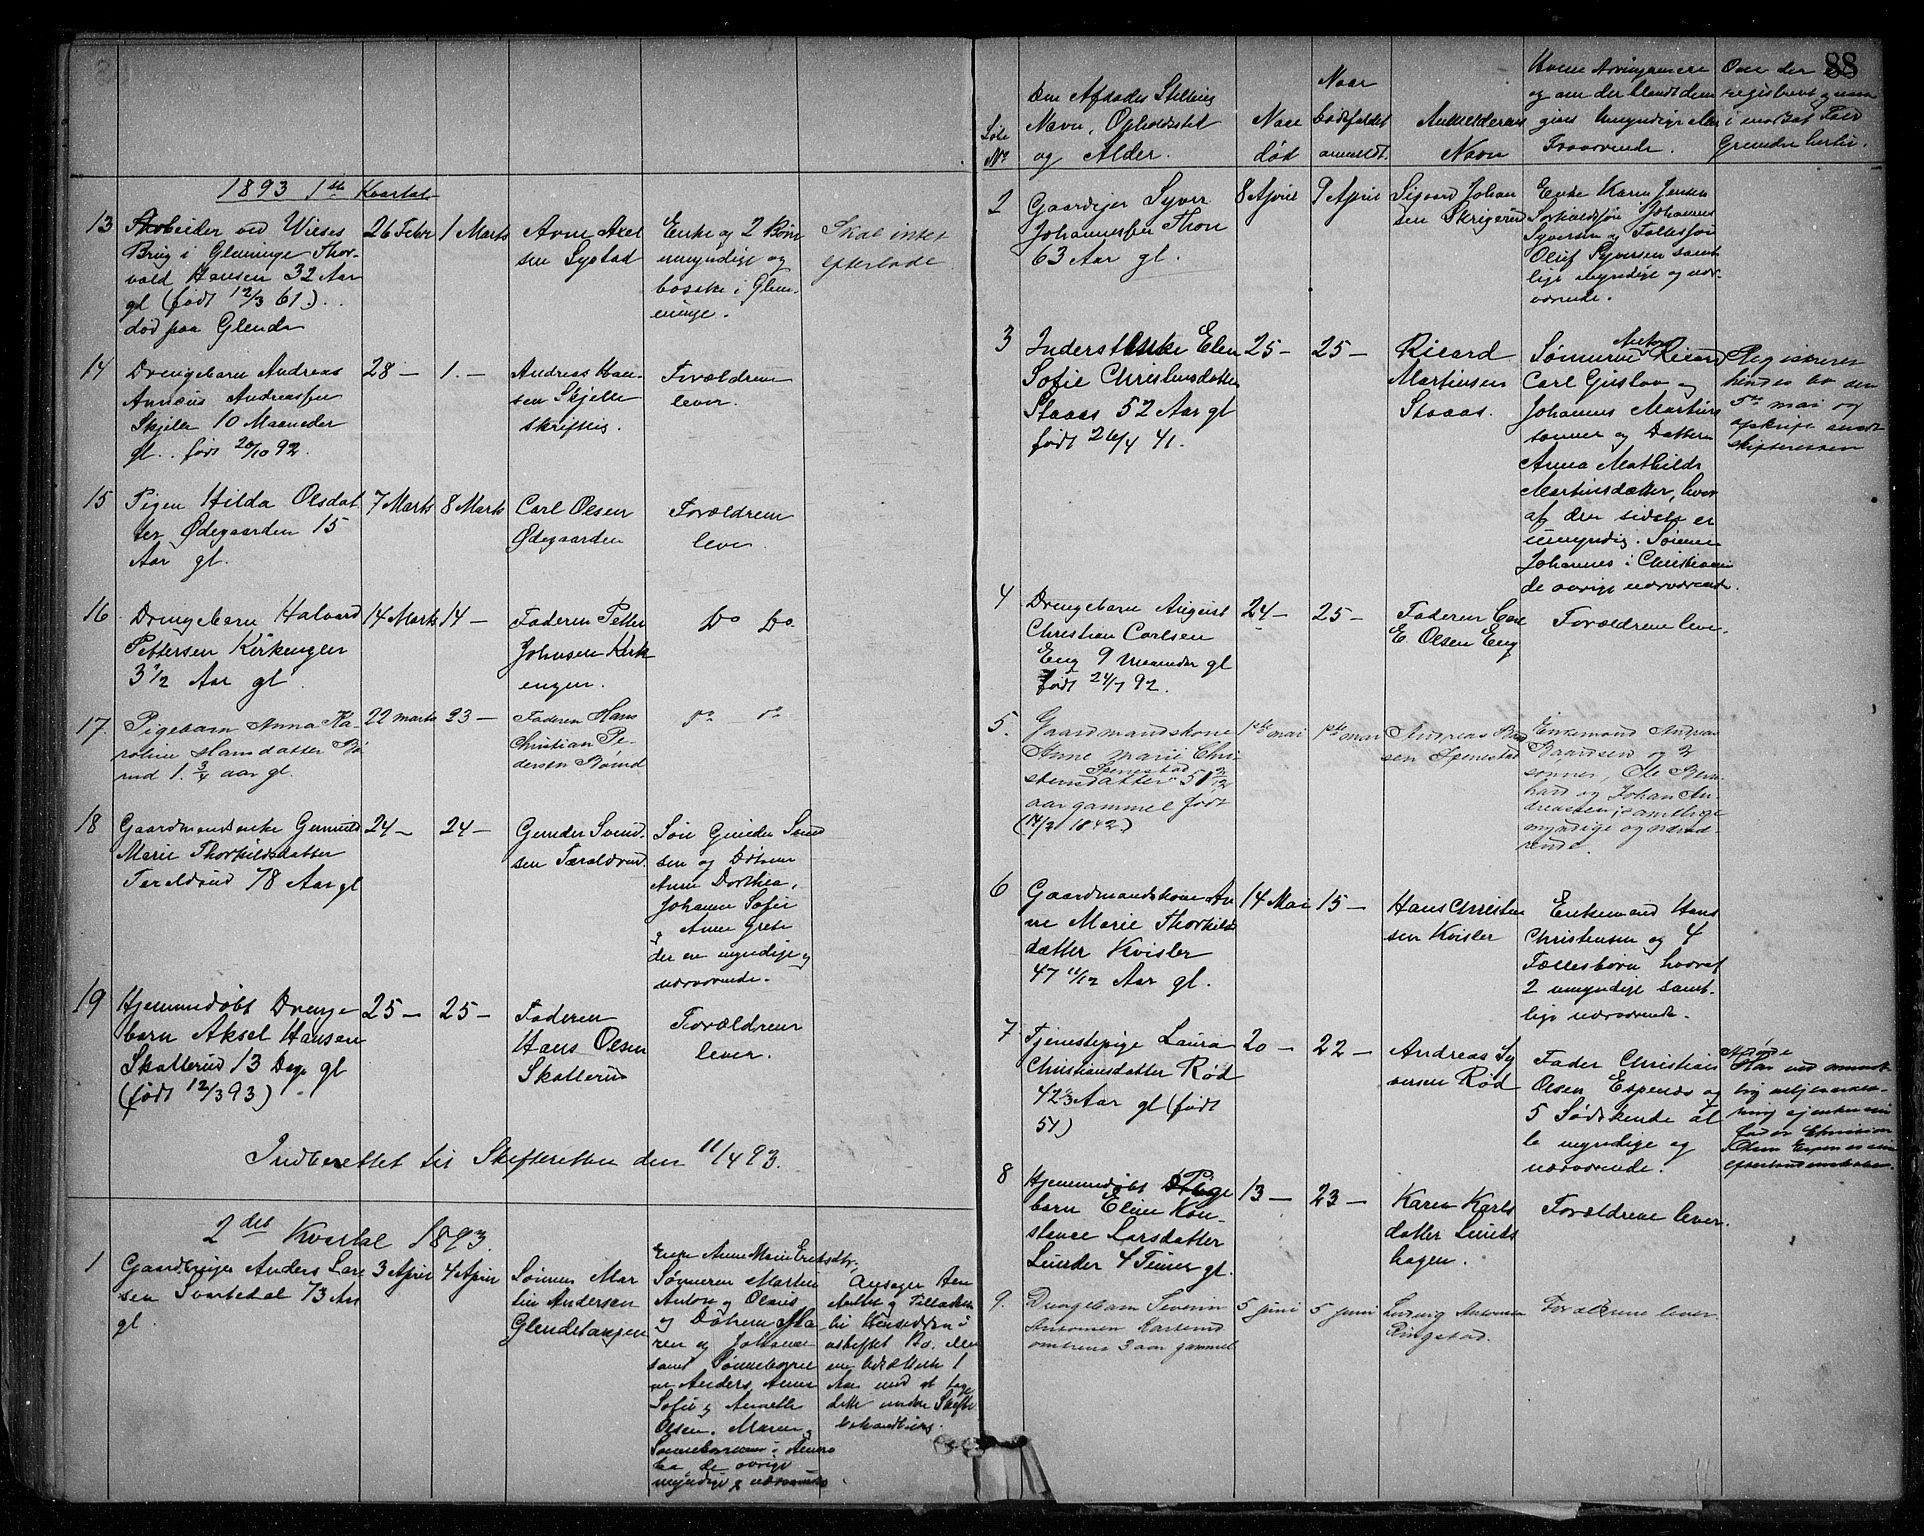 1893 1ste Kvartal
13
Arbeider ved Wieses
Brug i Glemminge Thor-
vald Hansen 32 Aar
gl (født 12/3 61).
død paa Glende
26 Febr
1 Marts
Arne Axel
sen Systad
Enke og 2 Børn
umyndige og
bosatte i Glem-
minge.
Skal intet
efterlade
14
Drengebarn Andreas
Annæus Andreassen
Skjelle 10 Maaneder
gl. født 20/10 92.
28 —
1. —
Andreas Han-
sen Skjelle
skriftlig.
Forældrene
lever.
15
Pigen Hilda Olsdat
ter Ødegaarden 15
Aar gl.
7 Marts
8 Marts
Carl Olsen
Ødegaarden
Forældrene
lever.
16
Drengebarn Halvard
Pettersen Kirkengen
3 1/2 Aar gl.
14 Marts
14 —
Faderen Petter
Johnsen Kirk
engen.
Do Do.
17.
Pigebarn Anna Ka-
roline Hansdatter Bø-
rud 1. 3/4 aar gl.
22 marts
23 —
Faderen Hans
Christian Pe-
dersen
do do
18
Gaardmandsenke Gunnild
Marie Thorkildsdatter
Taraldrud 78 Aar gl
24 —
24 —
Gunder Svend-
sen Taraldrud.
Søn Gunder Svend
sen og Døtrene
Anne Dorthea,
Johanne Sofie
og Anne Grete
der er myndige og
nærværende.
19
Hjemmedøbt Drenge
barn Aksel Hansen
Skotterud 13 Dage gl
(født 12/3 93)
25 —
25 —
Faderen
Hans Olsen
Skotterud
Forældrene
lever.
Indberettet til Skifteretten den 11/4 93.
2det Kvartal 1893.
1
Gaardbruger Anders Lar
sen Svartedal 73 Aar
gl.
3 April
4 April
Sønnen Mar
tin Andersen
Glendetangen
Enke Anne Marie Eriksdtr,
Sønnerne Martin
Anton og Olaus
og Døtrene Ma
ren og Johanne
samt Sønnebørne
ne Anders, Anne
Sofie og Annette
Olsen. Maren og
Sønnebørnene i Ameri
ka de øvrige
myndige og nærværende.
88
Løbe
No
Den Afdødes Stilling
Navn, Opholdssted
og Alder.
Naar
død
Naar
Dødsfaldet
anmeldt.
Anmelderens
Navn
Hvem Arvingerne ere
og om der blandt dem
gives Umyndige eller
Fraværende.
Om der er
registreret og naar
i modsat Fald
Grunden hertil.
2
Gaardejer Syver
Johannesen Thon
63 Aar gl.
8 April
9 April
Sigvard Johan
sen Skrigerud
Enke Karen Jensen
Forholdsøn Johannes
Syversen og Fællessøn
Oluf Syversen samt
lige myndige og nær-
værende.
3
Inderstenke Elen
Sofie Christensdatter
Staaas 52 Aar gl
født 26/4 41.
25 —
25 —
Ricard
Martinsen
Staaas.
Anton
Sønnerne Ricard
Carl Gustav og
Johannes Martins
sønner og Datteren
Anna Mathilde
Martinsdatter, hvor
af den sidste er
umyndig. Sønnen
Johannes i Christiania
de øvrige nærværende.
4
Drengebarn August
Christian Carlsen
Eng 9 Maaneder gl
født 24/7 92.
24 —
25 —
Faderen Carl
E. Olsen Eng
Forældrene lever.
5.
Gaardmandskone
Anne Marie Chri-
Spenestad
stensdatter 51 2/12
aar gammel født
(14/2 1842)
1ste mai
1ste mai
Andreas Baard
sen Spenestad
Enkemand Andreas
Baardsen og 2
sønner, Ole Bern-
hard og Johan An-
dreassen; samtlige
myndige og nærvæ-
rende.
6
Gaardmandskone An
ne Marie Thorkilds
datter Kvisler
47 11/12 Aar gl.
14 Mai
15 —
Hans Christen
sen Kvisler
Enkemand Hans
Christensen og 4
Fællesbørn hvoraf
2 umyndige samt-
lige nærværende.
7
Tjenestepige Laura
Christiansdatter Rød
42 Aar gl (født
51)
20 —
22 —
Andreas Sy
versen Rød
Fader Christian
Olsen Espenes og
5 Sødskende al
le myndige og
nærværende.
8
Hjemmedøbt Pige
barn Eline Kon-
stance Larsdatter
Lunder 4 Timer gl.
13 —
23 —
Karen Karls
datter Lunds
hagen.
Forældrene lever.
9.
Drengebarn Severin
Antonsen
omtrent 3 aar gammel
5 juni
5 juni
Ludvig Antonsen
Ringstad.
Forældrene lever